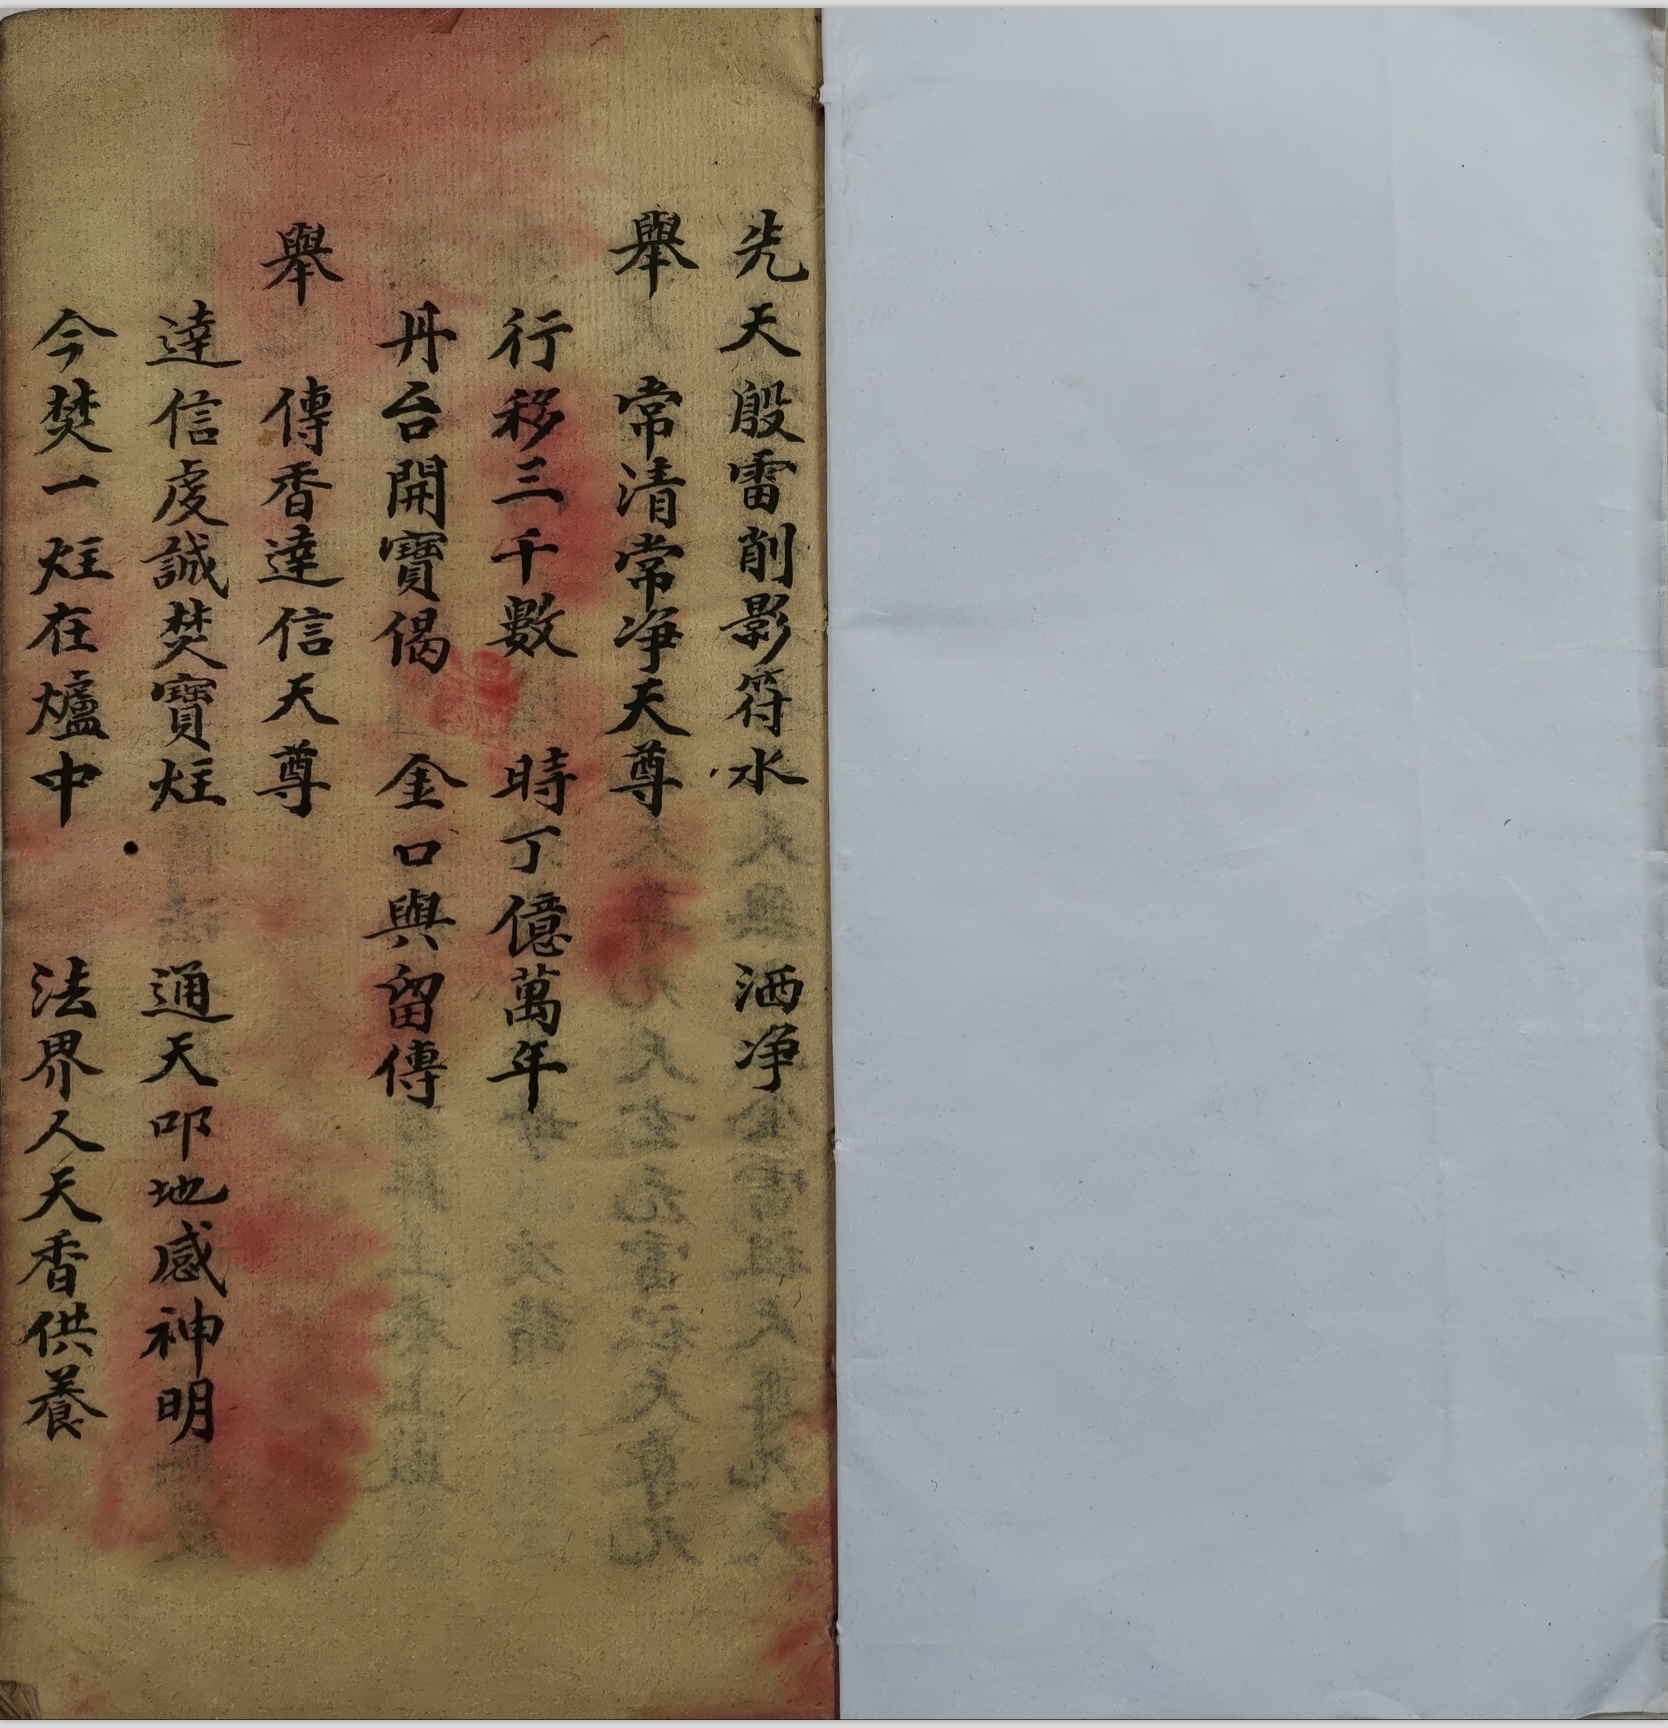 先天殷雷削影符水　洒净
舉　常清常净天尊
行移三千數　時丁億萬年
丹台開寶偈　金口與留傳
舉　傳香達信天尊
達信虔誠焚寶炷　通天叩地感神明
今焚一炷在爐中　法界人天香供養